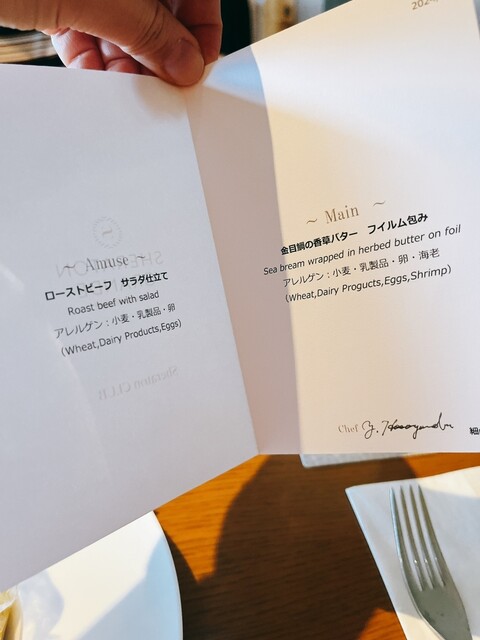 ~ Amuse ~
ローストビーフ サラダ仕立て
Roast beef with salad
アレルゲン：小麦・乳製品・卵
(Wheat,Dairy Products,Eggs)
Sheraton CLUB
202
~ Main ~
金目鯛の香草バター フイルム包み
Sea bream wrapped in herbed butter on foil
アレルゲン：小麦・乳製品・卵・海老
(Wheat,Dairy Products,Eggs,Shrimp)
Chef
細